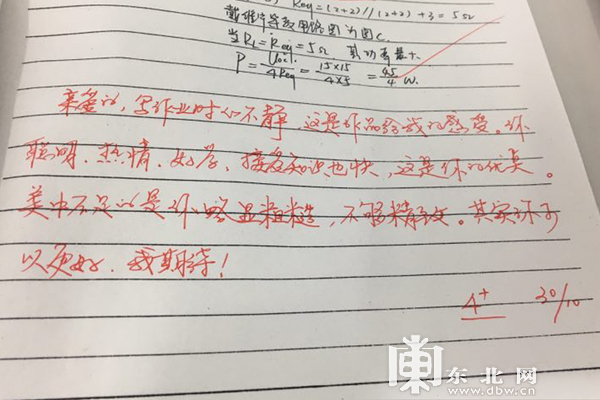 Req = (2+2)//(2+2)+3 = 5Ω
戴维宁等效电路图为图C.
当RL=Req=5Ω 其功率最大.
P = Uoc²/4Req = 15×15/4×5 = 45/4 W.
亲爱的,写作业时心不静,这是作品给我的感受。你
聪明、热情、好学、接受知识也快,这是你的优点。
美中不足的是你略显粗糙,不够精致。其实你可
以更好,我期待!
4+ 30/10
東 东北网
www.dbw.cn